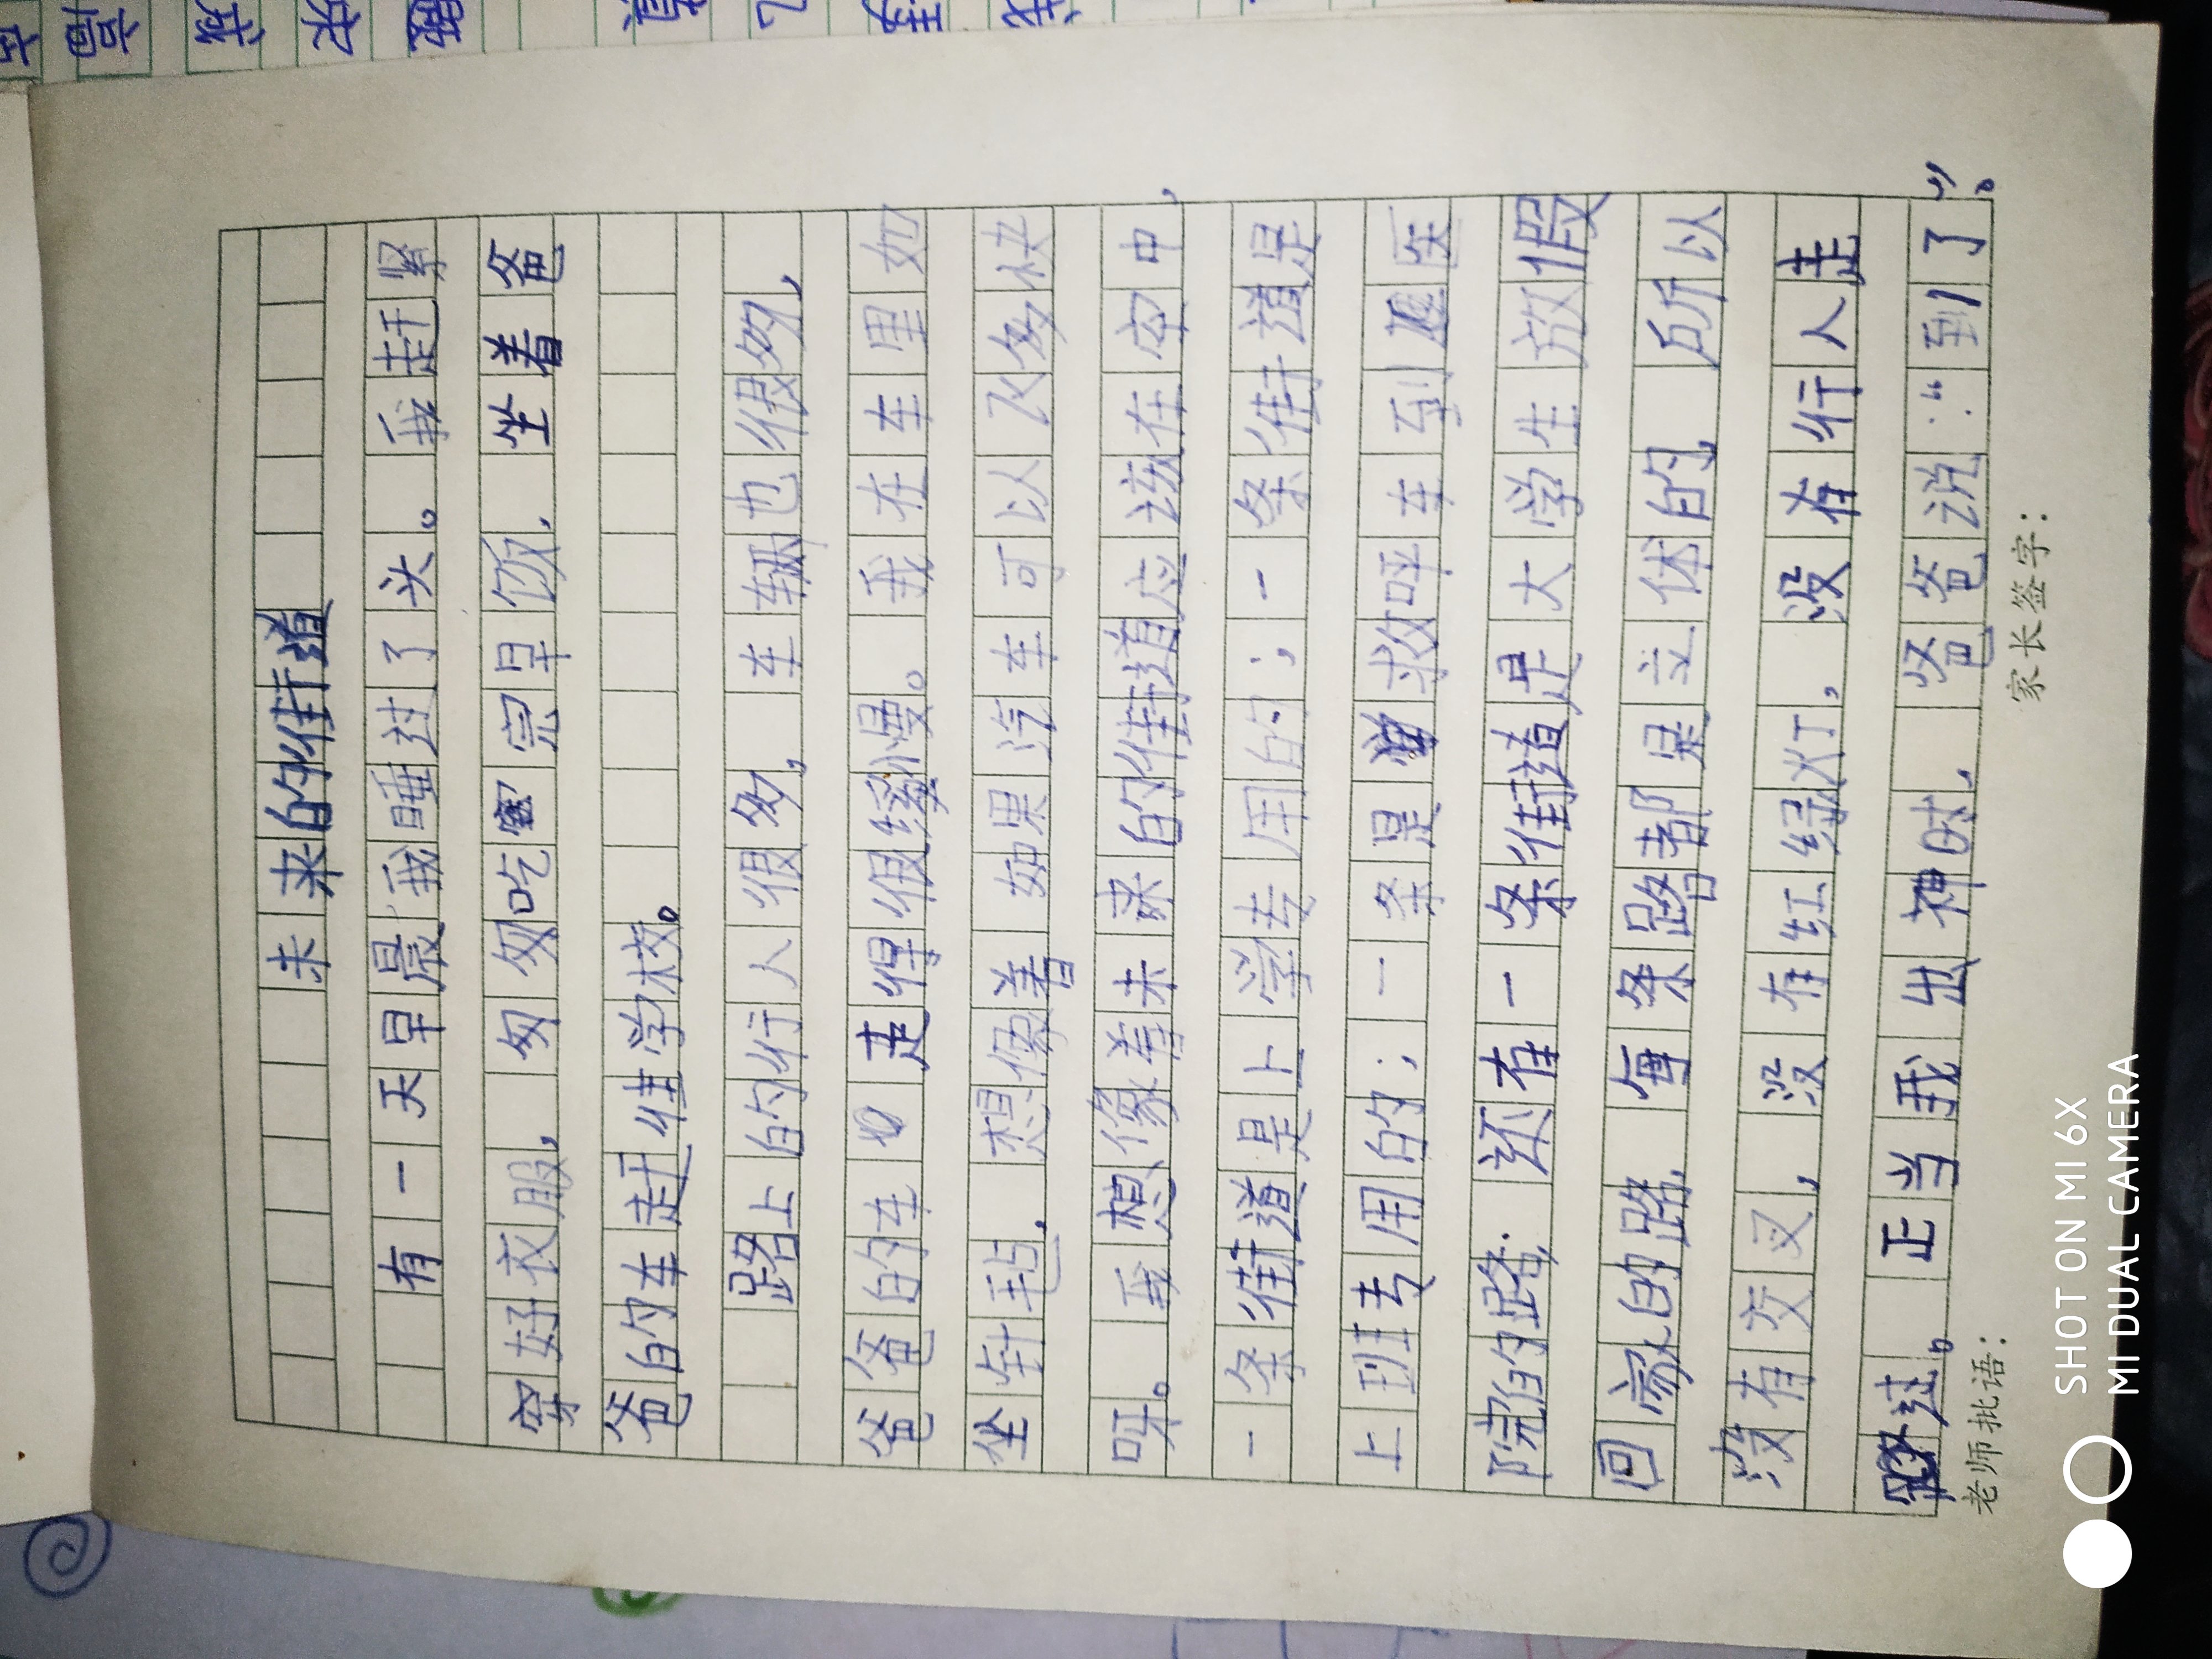 未来的街道
有一天早晨我睡过了头。我赶紧
穿好衣服,匆匆吃完早饭,坐着爸
爸的车赶往学校。
路上的行人很多,车辆也很多,
爸爸的车也走得很缓慢。我在车里如
坐针毡,想像着如果汽车可以飞多快
呀。我想像着未来的街道应该在空中,
一条街道是上学专用的;一条街道是
上班专用的;一条是救呼车到医
院的路;还有一条街道是大学生放假
回家的路,每条路都是立体的,所以
没有交叉,没有红绿灯,没有行人走
过。正当我出神时,爸爸说:“到了”。
老师批语:
家长签字:
SHOT ON MI 6X
MI DUAL CAMERA